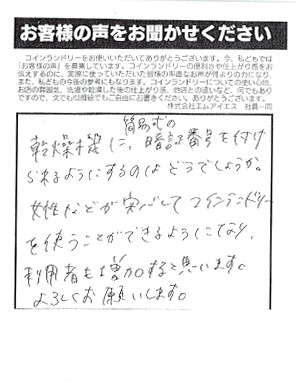 お客様の声をお聞かせください
コインランドリーをお使いいただいてありがとうございます。今、私どもでは
「お客様の声」を募集しています。コインランドリーの便利さや仕上がり感をお
伝えするのに、実際に使っていただいた皆様の率直なお声が何よりの力になり、
また、私どもの今後の参考にもなります。コインランドリーについての使い心地、
お店の雰囲気、洗濯や乾燥した後の仕上がり感、他店との違いなど、何でもあり
ですので、文でも似顔絵でもご自由にお書きください。ありがとうございます。
株式会社エムアイエス 社員一同
簡易式の
乾燥機に、暗証番号を付け
られるようにするのはどうでしょうか。
女性などが安心してコインランドリー
を使うことができるようになり、
利用者も増加すると思います。
よろしくお願いします。